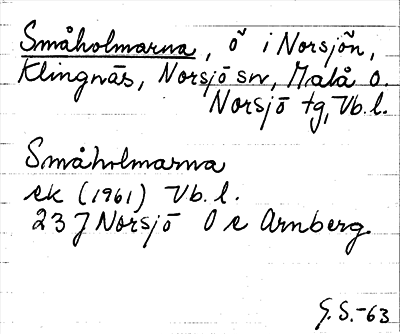 Småholmarna, ö i Norsjön,
Klingnäs, Norsjö sn, Malå o.
Norsjö tg, Vb. l.
Småholmarna
ek (1961) Vb. l.
23 J Norsjö O c Arnberg
G. S.-63